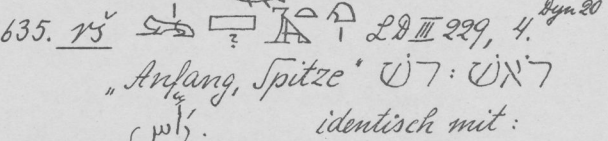 635. rš LD III 229, 4. Dyn 20
„Anfang, Spitze“ רֹאשׁ : רשׁ
رَأْس. identisch mit :